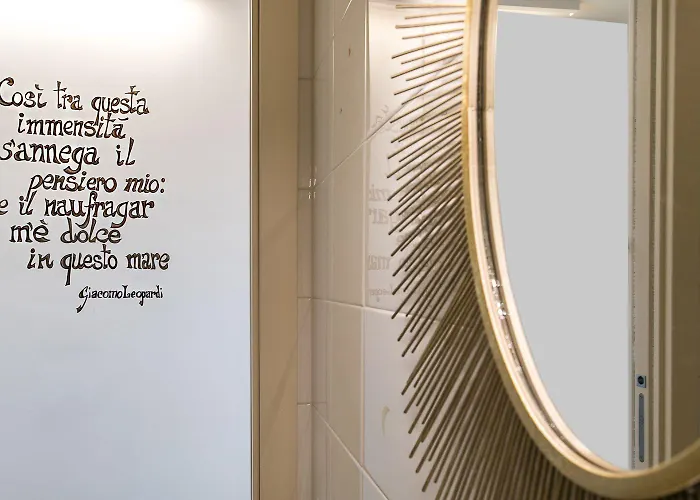 Così tra questa
immensità
s'annega il
pensiero mio:
e il naufragar
m'è dolce
in questo mare
Giacomo Leopardi